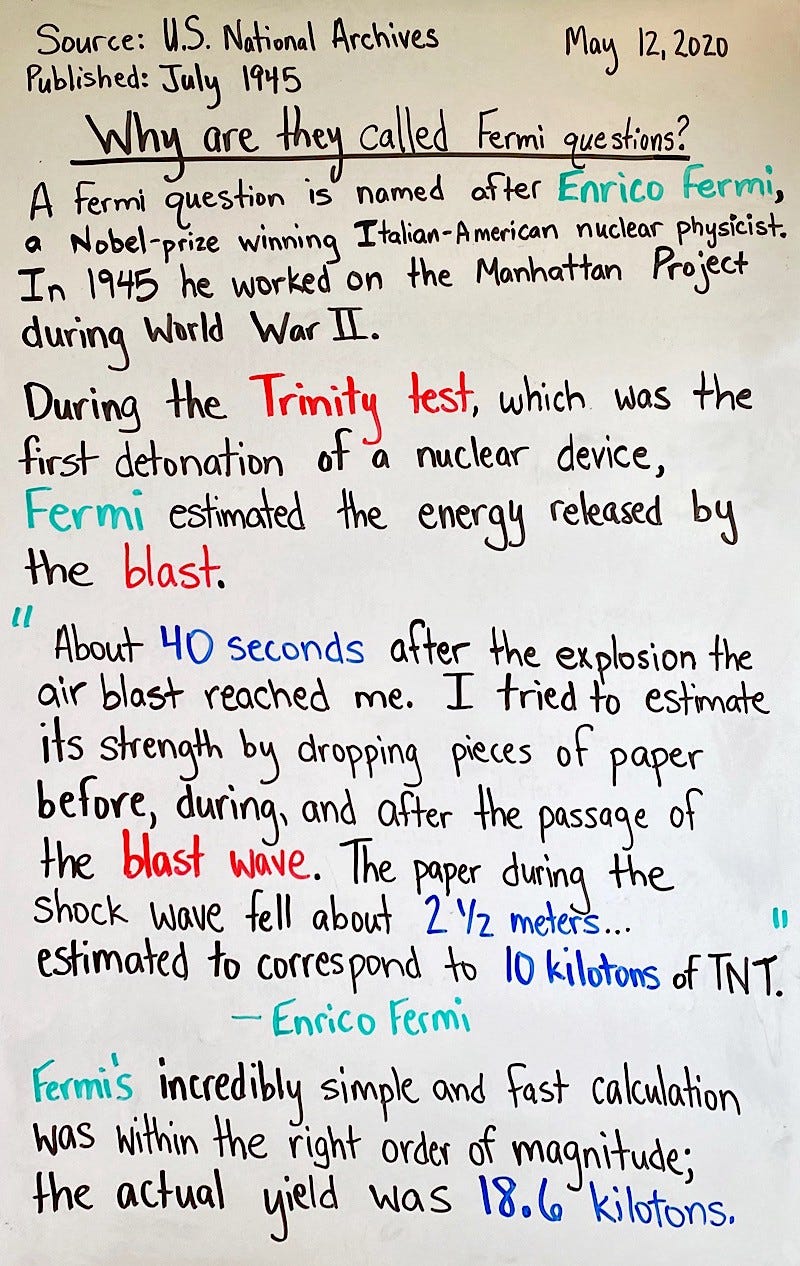 Source: U.S. National Archives
May 12, 2020
Published: July 1945
Why are they called Fermi questions?
A Fermi question is named after Enrico Fermi,
a Nobel-prize winning Italian-American nuclear physicist.
In 1945 he worked on the Manhattan Project
during World War II.
During the Trinity test, which was the
first detonation of a nuclear device,
Fermi estimated the energy released by
the blast.
"About 40 seconds after the explosion the
air blast reached me. I tried to estimate
its strength by dropping pieces of paper
before, during, and after the passage of
the blast wave. The paper during the
shock wave fell about 2 1/2 meters...
estimated to correspond to 10 kilotons of TNT."
— Enrico Fermi
Fermi's incredibly simple and fast calculation
was within the right order of magnitude;
the actual yield was 18.6 kilotons.